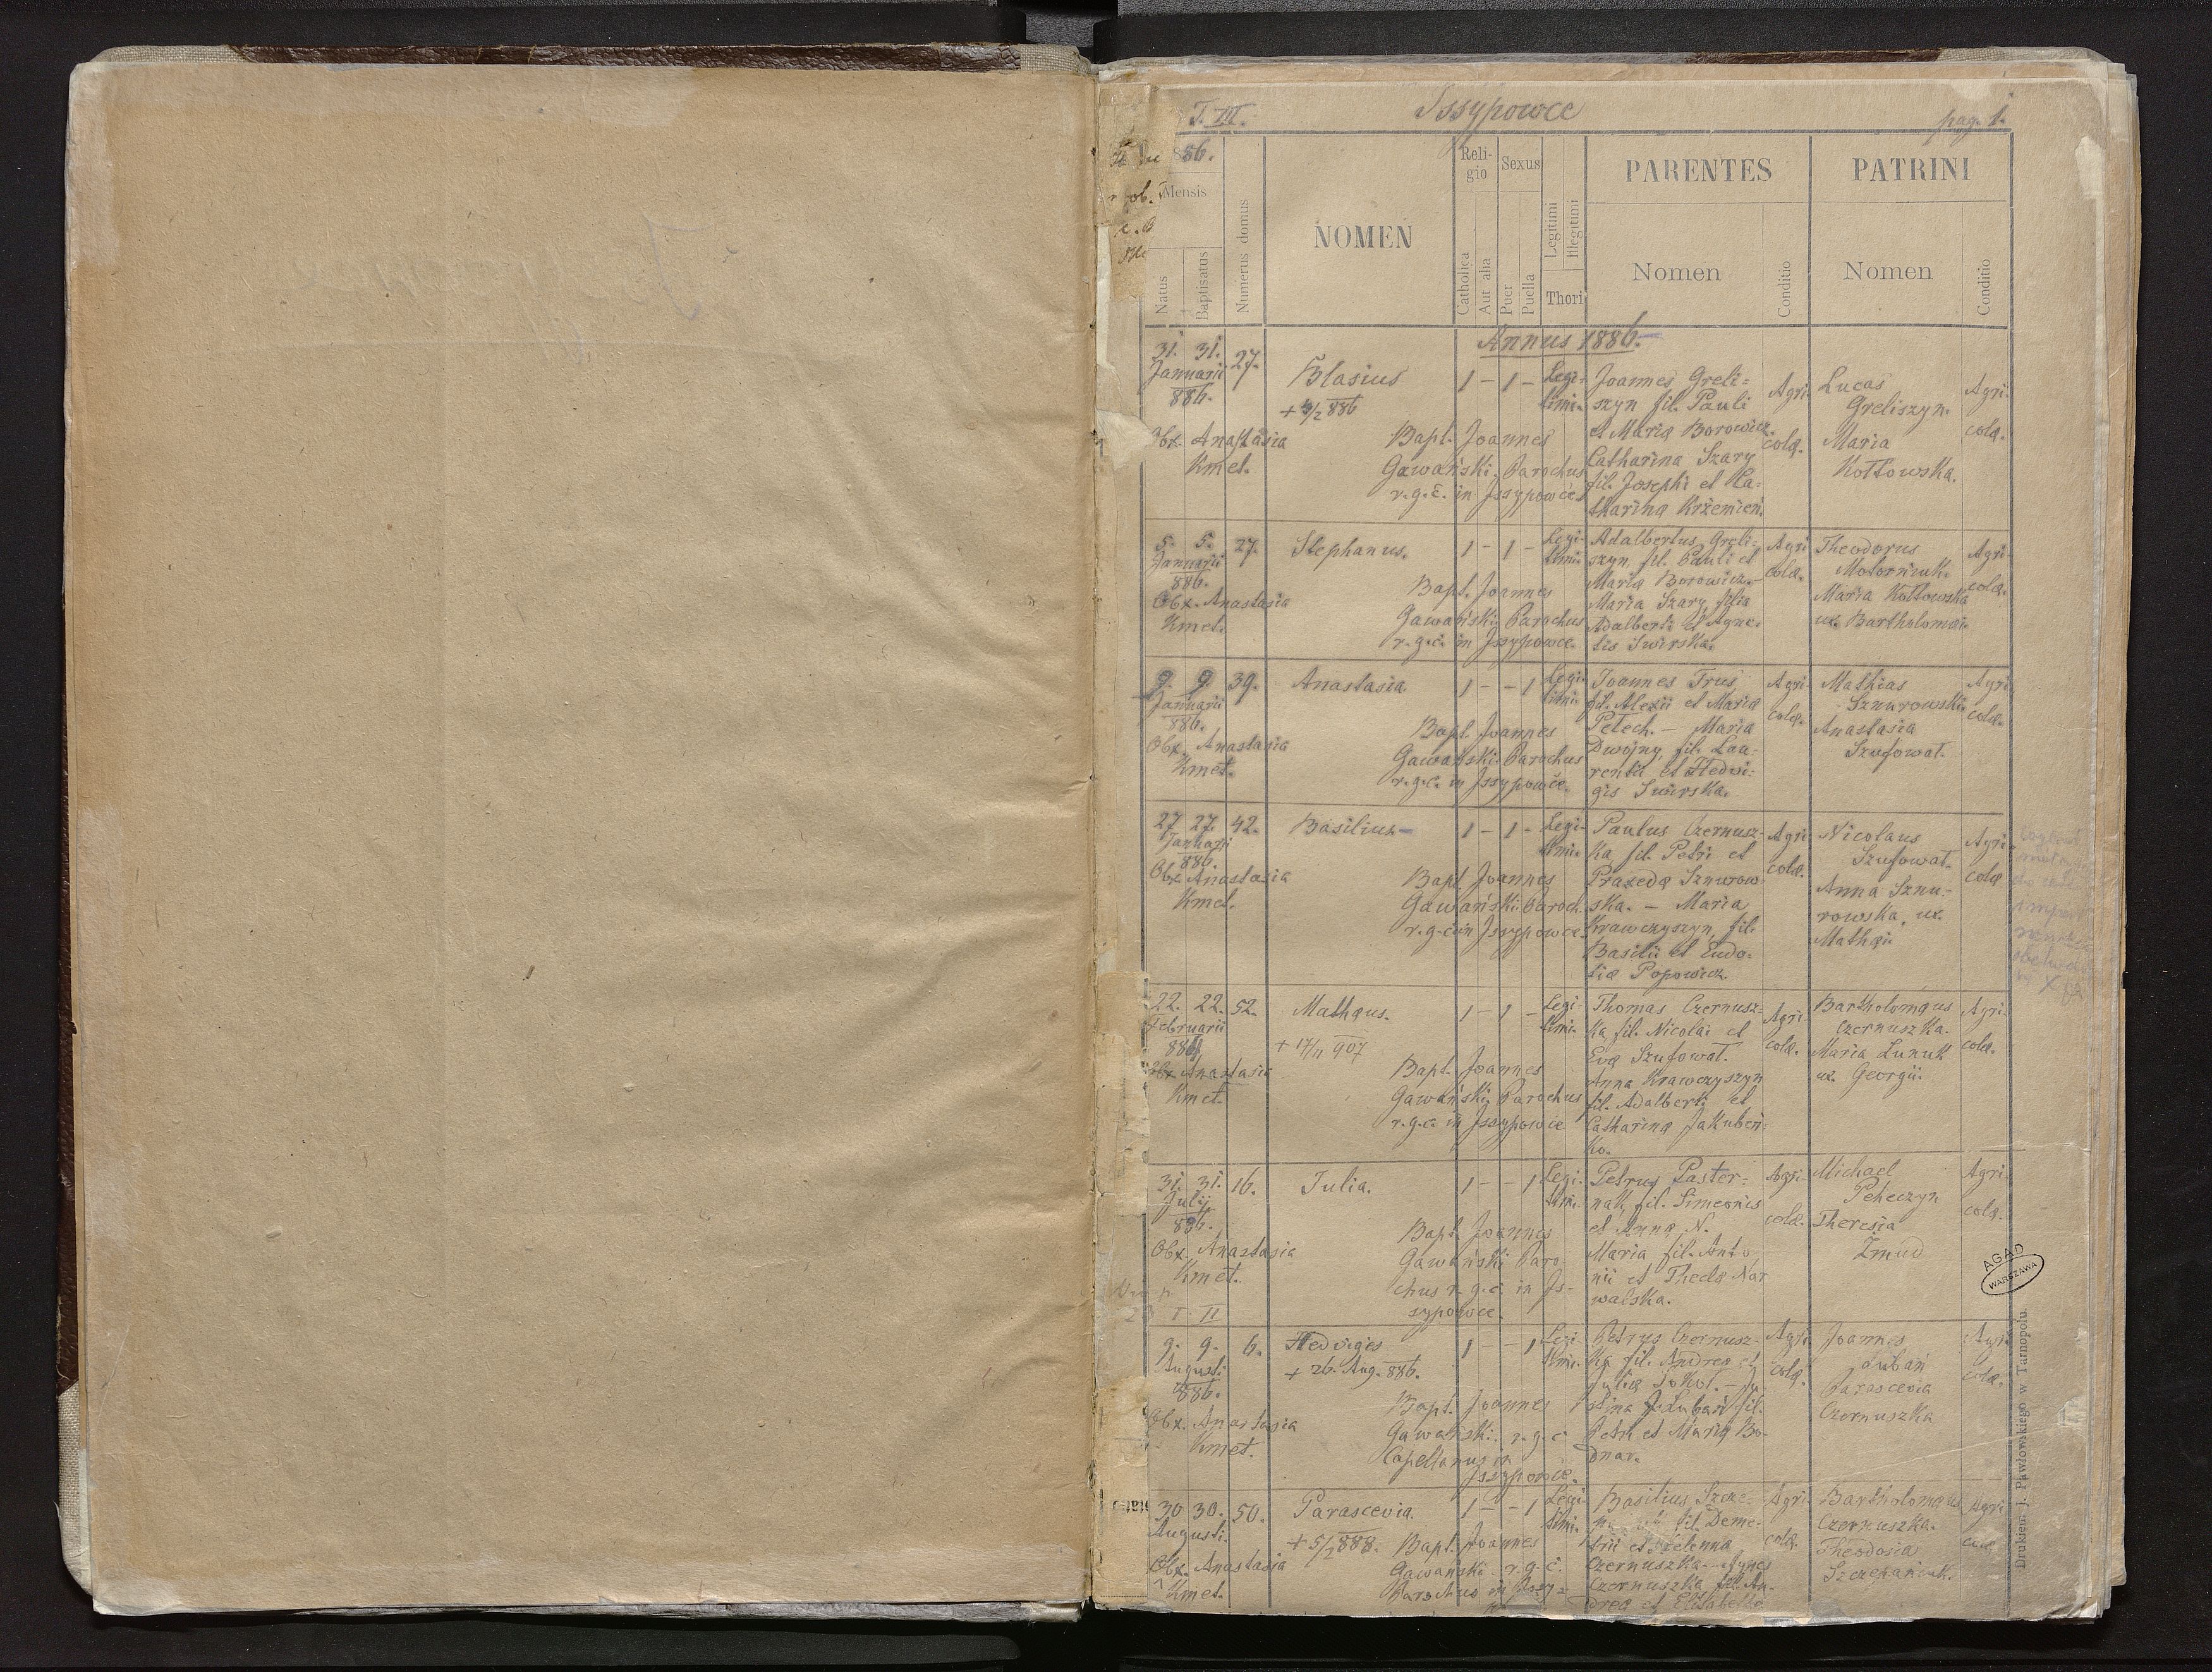 T. III.
Issypowce
pag. 1.
886.
Mensis
Natus
Baptisatus
Numerus domus
NOMEN
Religio
Catholica
Aut alia
Sexus
Puer
Puella
Legitimi
Illegitimi
Thori
PARENTES
Nomen
Conditio
PATRINI
Nomen
Conditio
Annus 1886.
31. 31. 27.
Januarii
886.
Obx. Anastasia
Kmet.
Blasius
+ 4/2 886
Bapt. Joannes
Gawański, Parochus
r.g.c. in Issypowce
1 - 1 -
Legi-
timi.
Joannes Greli=
szyn fil. Pauli
et Mariæ Borowicz.
Catharina Szary
fil. Josephi et Ca-
tharinæ Krzemień.
Agri-
colæ.
Lucas
Greliszyn.
Maria
Kottowska.
Agri-
colæ.
5. 5. 27.
Januarii
886.
Obx. Anastasia
Kmet.
Stephanus.
Bapt. Joannes
Gawański, Parochus
r.g.c. in Issypowce.
1 - 1 -
Legi-
timi.
Adalbertus Greli-
szyn fil. Pauli et
Mariæ Borowicz.-
Maria Szary filia
Adalberti et Agne-
tis Swirska.
Agri-
colæ.
Theodorus
Motorniuk.
Maria Kottowska
ux. Bartholomæi.
Agri-
colæ.
9. 9. 39.
Januarii
886.
Obx. Anastasia
Kmet.
Anastasia
Bapt. Joannes
Gawański Parochus
r.g.c. in Issypowce.
1 - - 1
Legi-
timi.
Joannes Trus
fil. Alexii et Mariæ
Petech. - Maria
Dwojny fil. Lau-
rentii et Hedwi-
gis Swirska.
Agri-
colæ.
Mathias
Sznurowski.
Anastasia
Szufowat.
Agri-
colæ.
27 27. 42.
Januarii
886.
Obx Anastasia
Kmet.
Basilius
Bapt. Joannes
Gawański Paroch.
r.g.c. in Issypowce.
1 - 1 -
Legi-
timi.
Paulus Czernusz-
ka fil. Petri et
Praxedæ Sznurow-
ska. - Maria
Krawczyszyn, fil.
Basilii et Eudo-
siæ Popowicz.
Agri-
colæ.
Nicolaus
Szufowat.
Anna Sznu-
rowska, ux.
Mathæi
Agri-
colæ
22. 22. 52.
Februarii
886.
Obx Anastasia
Kmet.
Mathæus.
+ 17/11 907
Bapt. Joannes
Gawański Parochus
r.g.c. in Issypowce
1 - 1 -
Legi-
timi.
Thomas Czernusz-
ka, fil. Nicolai et
Evæ Szufowat.
Anna Krawczyszyn
fil. Adalberti et
Catharinæ Jakubeń-
ko.
Agri-
colæ.
Bartholomæus
Czernuszka.
Maria Lunuk
ux. Georgii.
Agri-
colæ.
31. 31. 16.
Julij
886.
Obx. Anastasia
Kmet.
Julia.
Bapt. Joannes
Gawański Paro
chus r.g.c. in Is-
sypowce.
1 - - 1
Legi-
timi.
Petrus Paster-
nak, fil. Simeonis
et Annæ N.
Maria fil. Anto
nii et Theclæ Nar
walska.
Agri-
colæ.
Michael
Peheczyn
Theresia
Zmud
Agri-
colæ.
9. 9. 6.
Augusti
886.
Obx. Anastasia
Kmet.
Hedviges
+ 26. Aug. 886.
Bapt. Joannes
Gawański, r.g.c
Capellanus in
Issypowce.
1 - - 1
Legi-
timi.
Petrus Czernusz-
ka fil. Andreæ et
Juliæ Sokol. - Ju-
stina Lubań fil.
Petri et Mariæ Bo-
dnar.
Agri-
colæ.
Joannes
Lubań
Parascevia
Czernuszka
Agri-
colæ.
30 30. 50.
Augusti.
Obx. Anastasia
Kmet.
Parascevia.
+ 5/2 888.
Bapt. Joannes
Gawański r.g.c.
Parochus in Issy=
1 - - 1
Legi-
timi.
Basilius
fil. Deme-
trii et Helenna
Czernuszka - Agnes
Czernuszka fil. An-
dreæ et Elisabethæ
Agri-
colæ.
Bartholomæus
Czernuszka.
Theodosia
Szczepaniuk.
Agri-
colæ
AGAD
WARSZAWA
Drukiem J. Pawłowskiego w Tarnopolu.